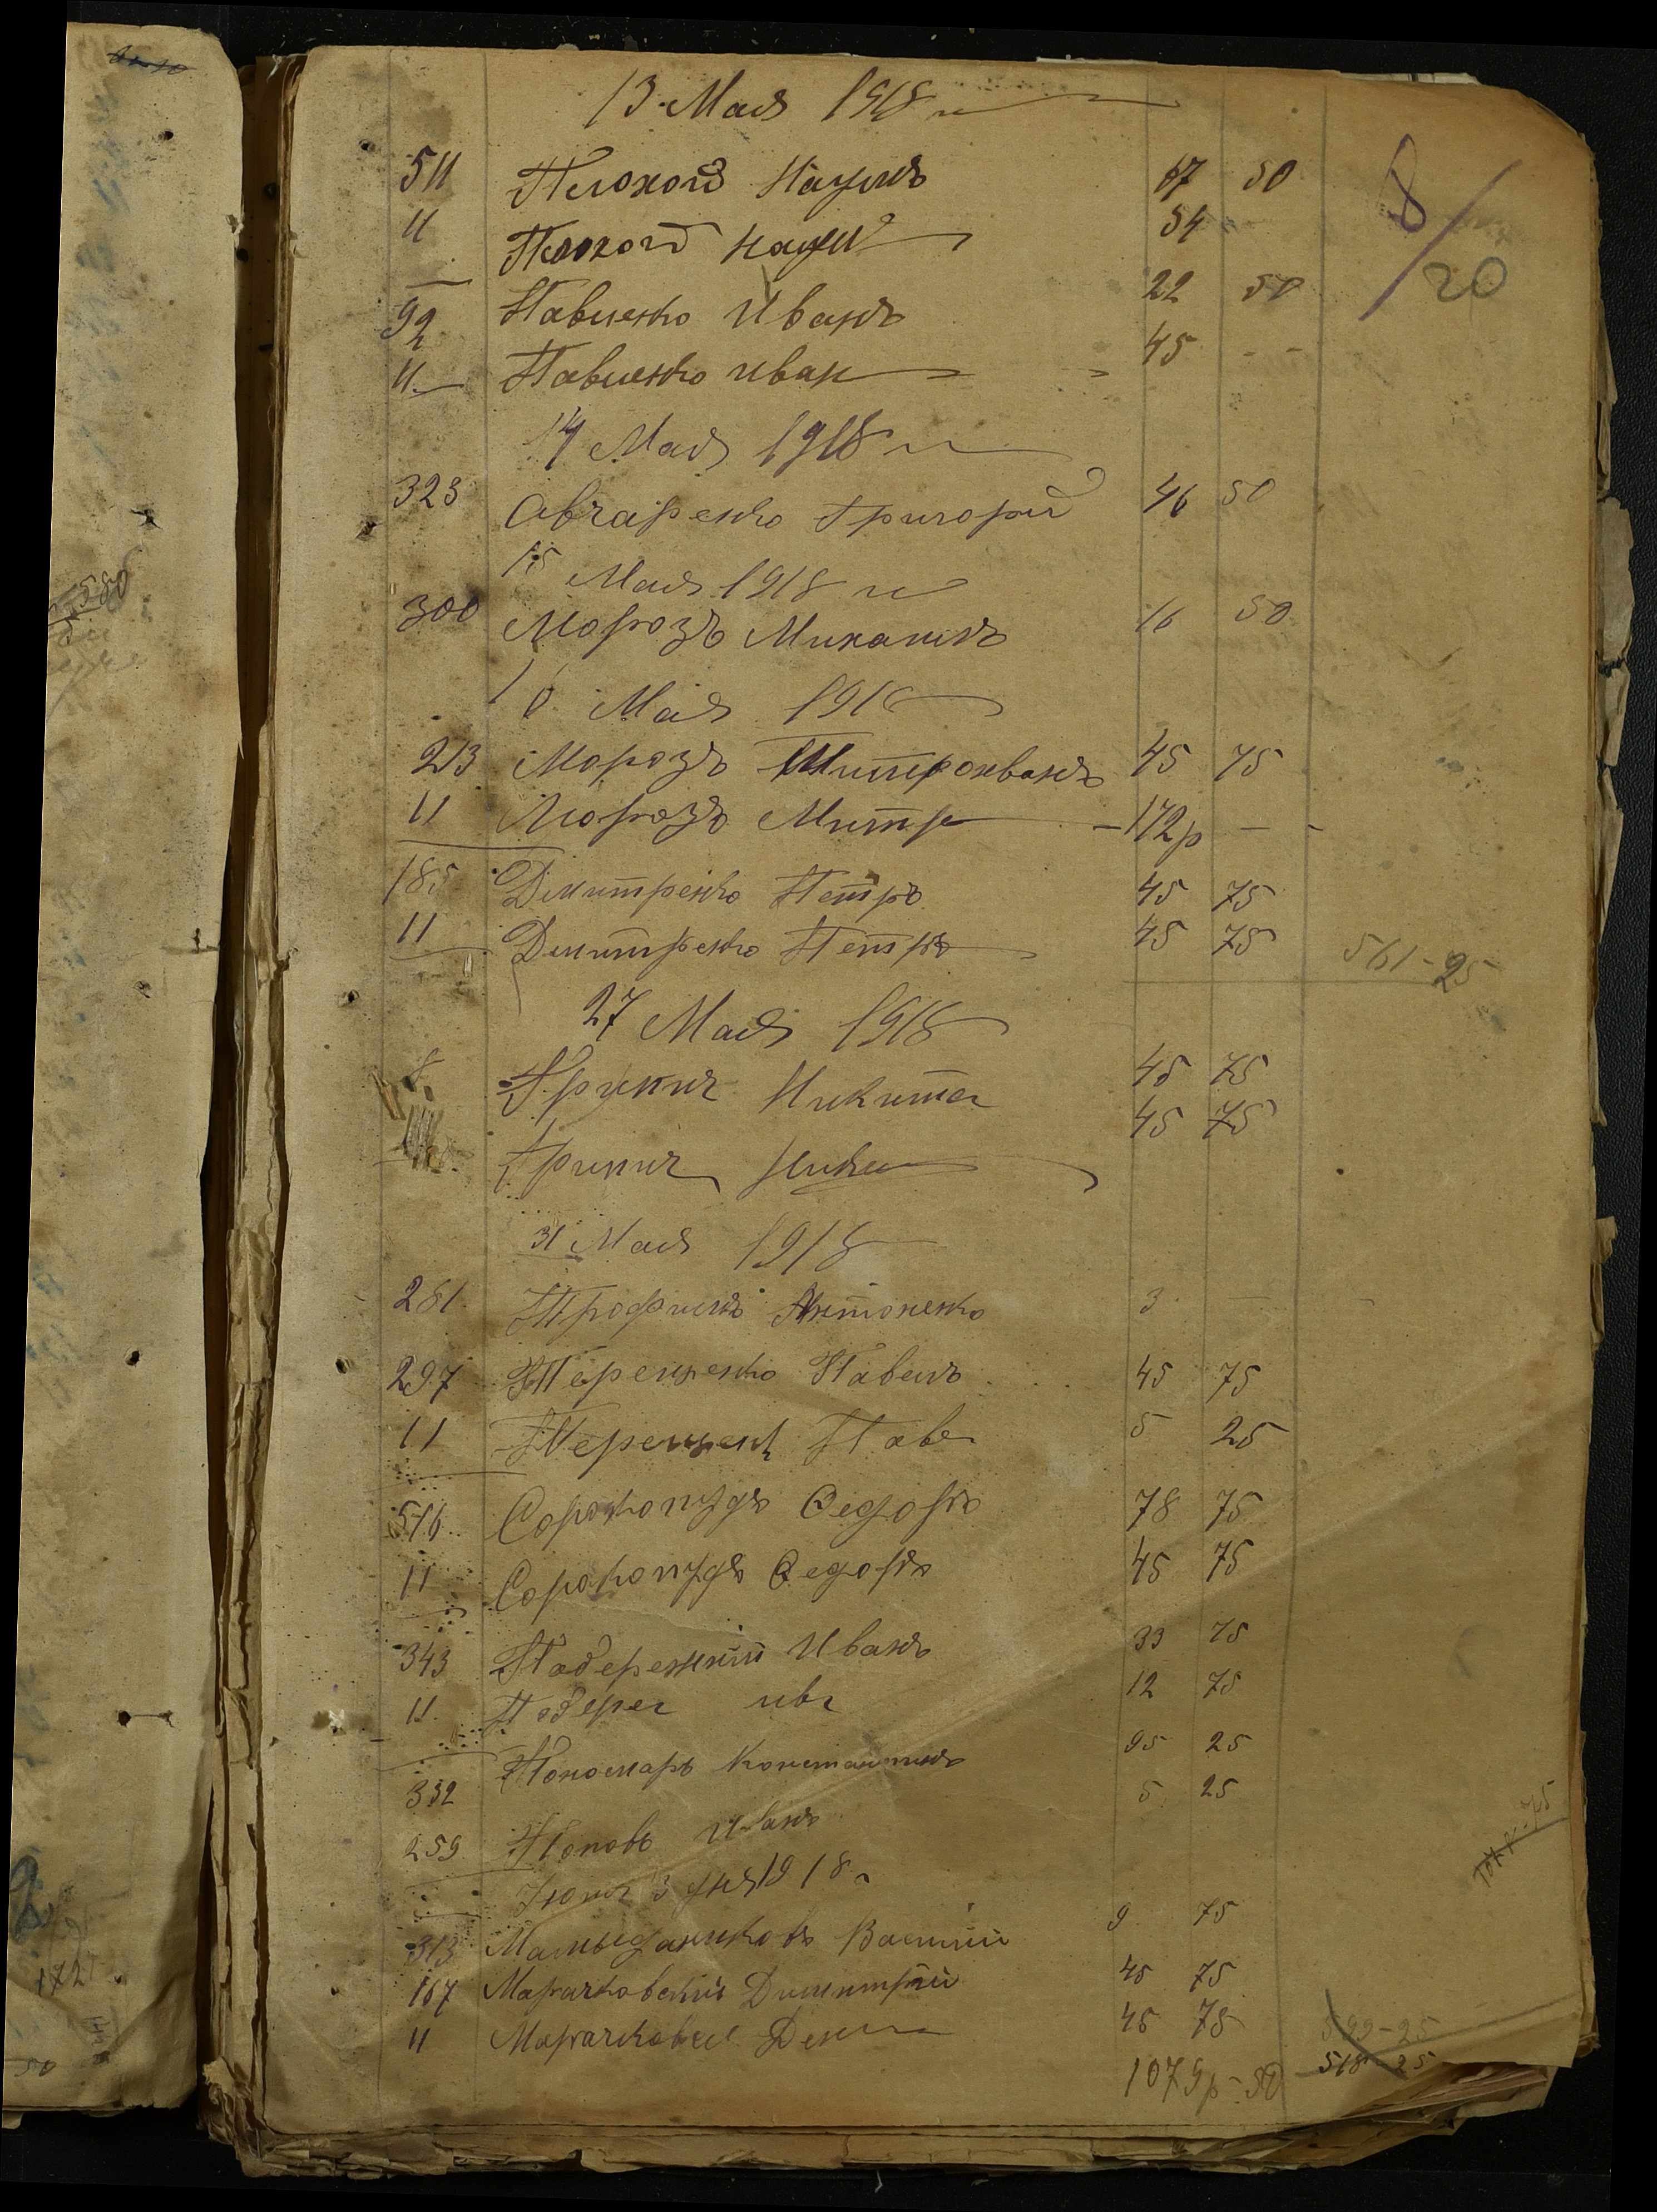 13 Мая 1918 г
511 Плохой Наумъ 67 50
11 Плохой Наум 54
92 Павленко Иванъ 22 50
11 Павленко иван 45 - -
8/20
14 Мая 1918 г
323 Овчаренко Григорій 46 50
15 Мая 1918 г
300 Морозъ Михаилъ 16 50
16 Мая 191
213 Морозъ Митрохванъ 45 75
11 Морозъ Митр 172р -
185 Дмитренко Петръ 45 75
11 Дмитренко Петръ 45 75
561-25
27 Мая 1918
Грипич Никита 45 75
Грипич Ники 45 75
31 Мая 1918
281 Трофимъ Антоненко 3 -
297 Терещенко Павелъ 45 75
11 Терещен Паве 5 25
516 Сорокопудъ Ѳедоръ 78 75
11 Сорокопудъ Ѳедоръ 45 75
343 Иванъ 33 75
11 ива 12 75
332 Пономарь Константинъ 95 25
259 Поповъ Иванъ 5 25
3 дня 1918 г
313 Василій 9 75
167 Марачковский Димитрій 45 75
11 45 75
599-25
518-25
1079р-50
172
50